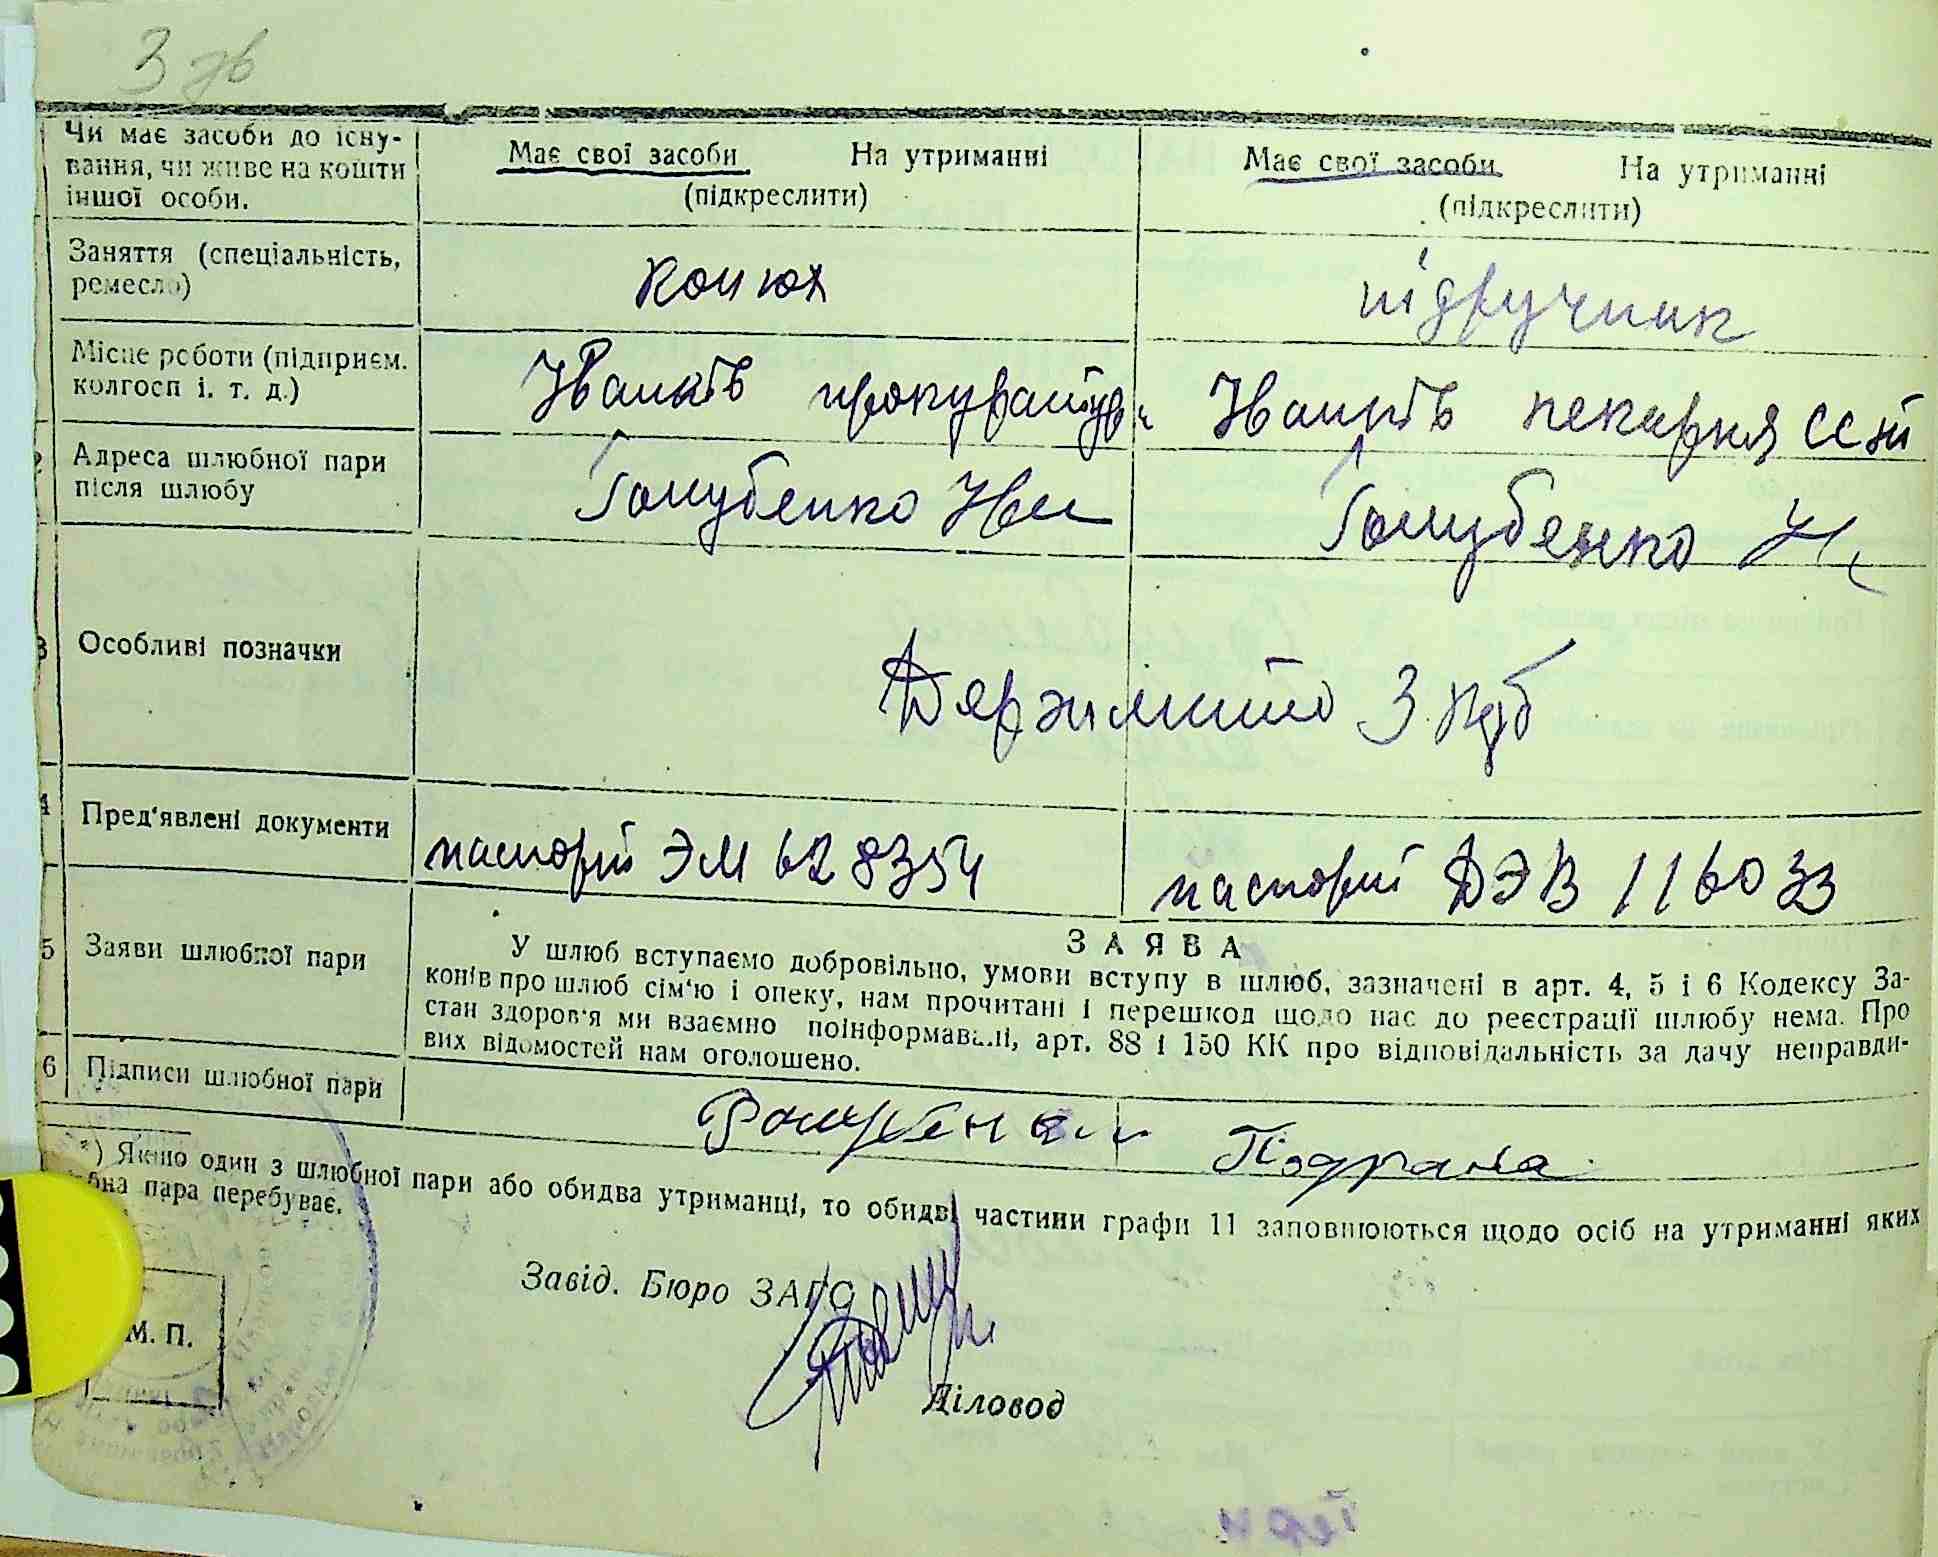 3 зв
Чи має засоби до існу-
вання, чи живе на кошти
іншої особи.
Має свої засоби На утриманні
(підкреслити)
Має свої засоби На утриманні
(підкреслити)
Заняття (спеціальність,
ремесло)
конюх
підручник
Місце роботи (підприєм.
колгосп і. т. д.)
Іванків прокуратур
Іванків пекарня
Адреса шлюбної пари
після шлюбу
Голубенко
Голубенко
3
Особливі позначки
Держмито 3 руб
4
Пред'явлені документи
паспорт ЭМ 628354
паспорт ДЭВ 116033
5
Заяви шлюбної пари
ЗАЯВА
У шлюб вступаємо добровільно, умови вступу в шлюб, зазначені в арт. 4, 5 і 6 Кодексу За-
конів про шлюб сім'ю і опеку, нам прочитані і перешкод щодо нас до реєстрації шлюбу нема. Про
стан здоров'я ми взаємно поінформавалі, арт. 88 і 150 КК про відповідальність за дачу неправди-
вих відомостей нам оголошено.
6
Підписи шлюбної пари
*) Якщо один з шлюбної пари або обидва утриманці, то обидві частини графи 11 заповнюються щодо осіб на утриманні яких
пара перебуває.
Завід. Бюро ЗАГС
М. П.
Діловод